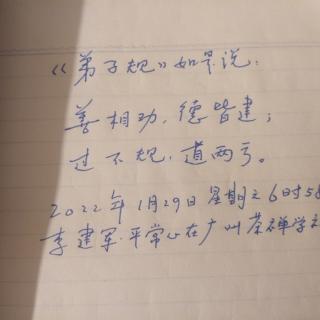 《弟子规》如是说:
善相劝,德皆建;
过不规,道两亏。
2022年1月29日 星期六6时58
李建军·平常心在广州茶禅学